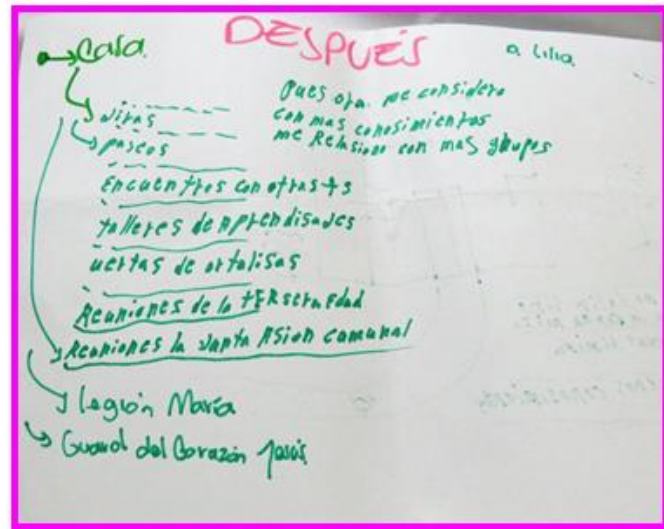 DESPUÉS
a lilia
→ Casa
Jiras
paseos
Pues ora. me considero
con mas conosimientos
me Relasiono con mas grupos
Encuentros con otras
talleres de Aprendisajes
uertas de ortalisas
Reuniones de la tERsera edad
Reuniones la Junta Asion comunal
legión María
Guard del Corazón Jesús